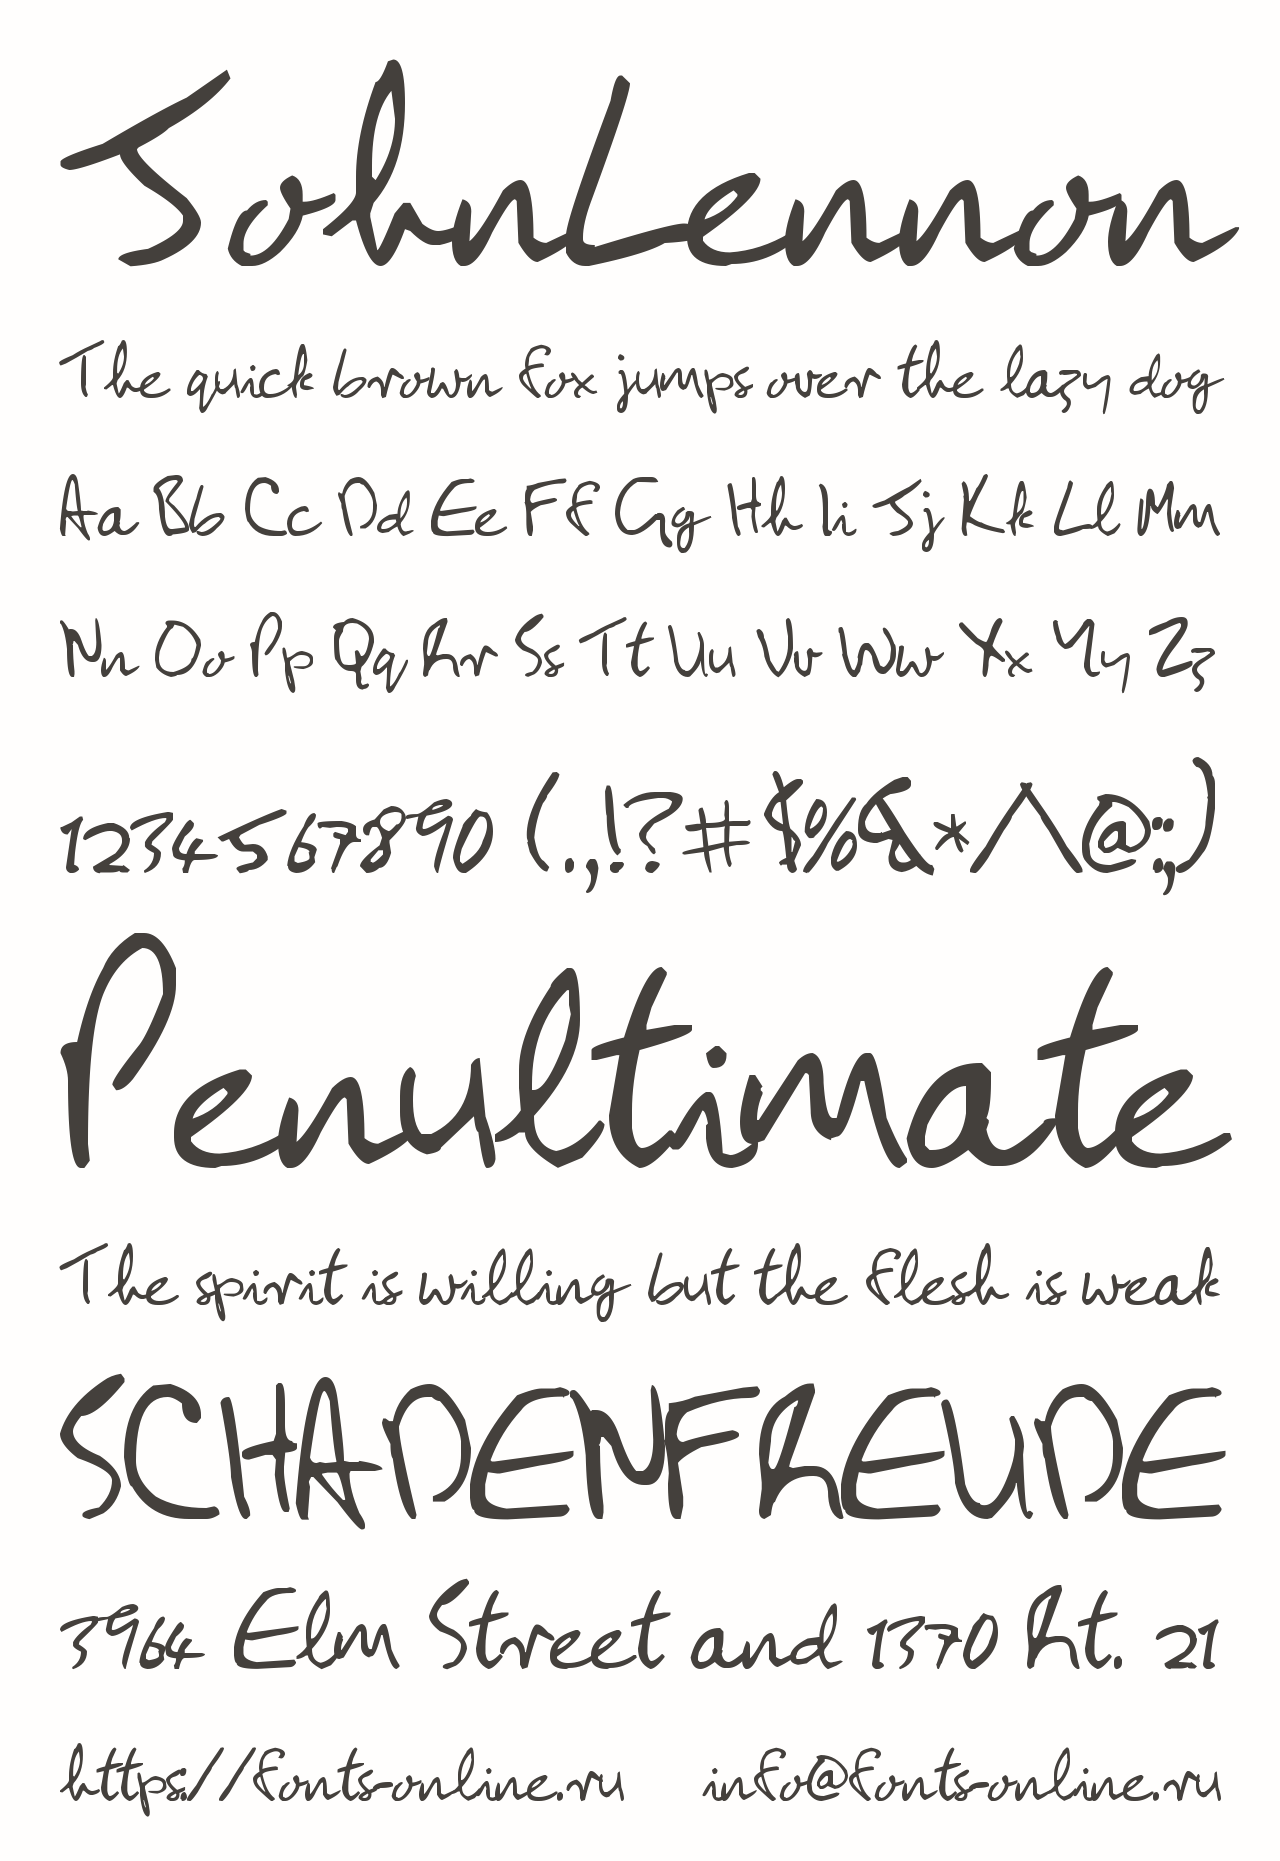 JohnLennon
The quick brown fox jumps over the lazy dog
Aa Bb Cc Dd Ee Ff Gg Hh Ii Jj Kk Ll Mm
Nn Oo Pp Qq Rr Ss Tt Uu Vv Ww Xx Yy Zz
1234567890 (.,!?#$%&*/\@:;)
Penultimate
The spirit is willing but the flesh is weak
SCHADENFREUDE
3964 Elm Street and 1370 Rt. 21
https://fonts-online.ru info@fonts-online.ru